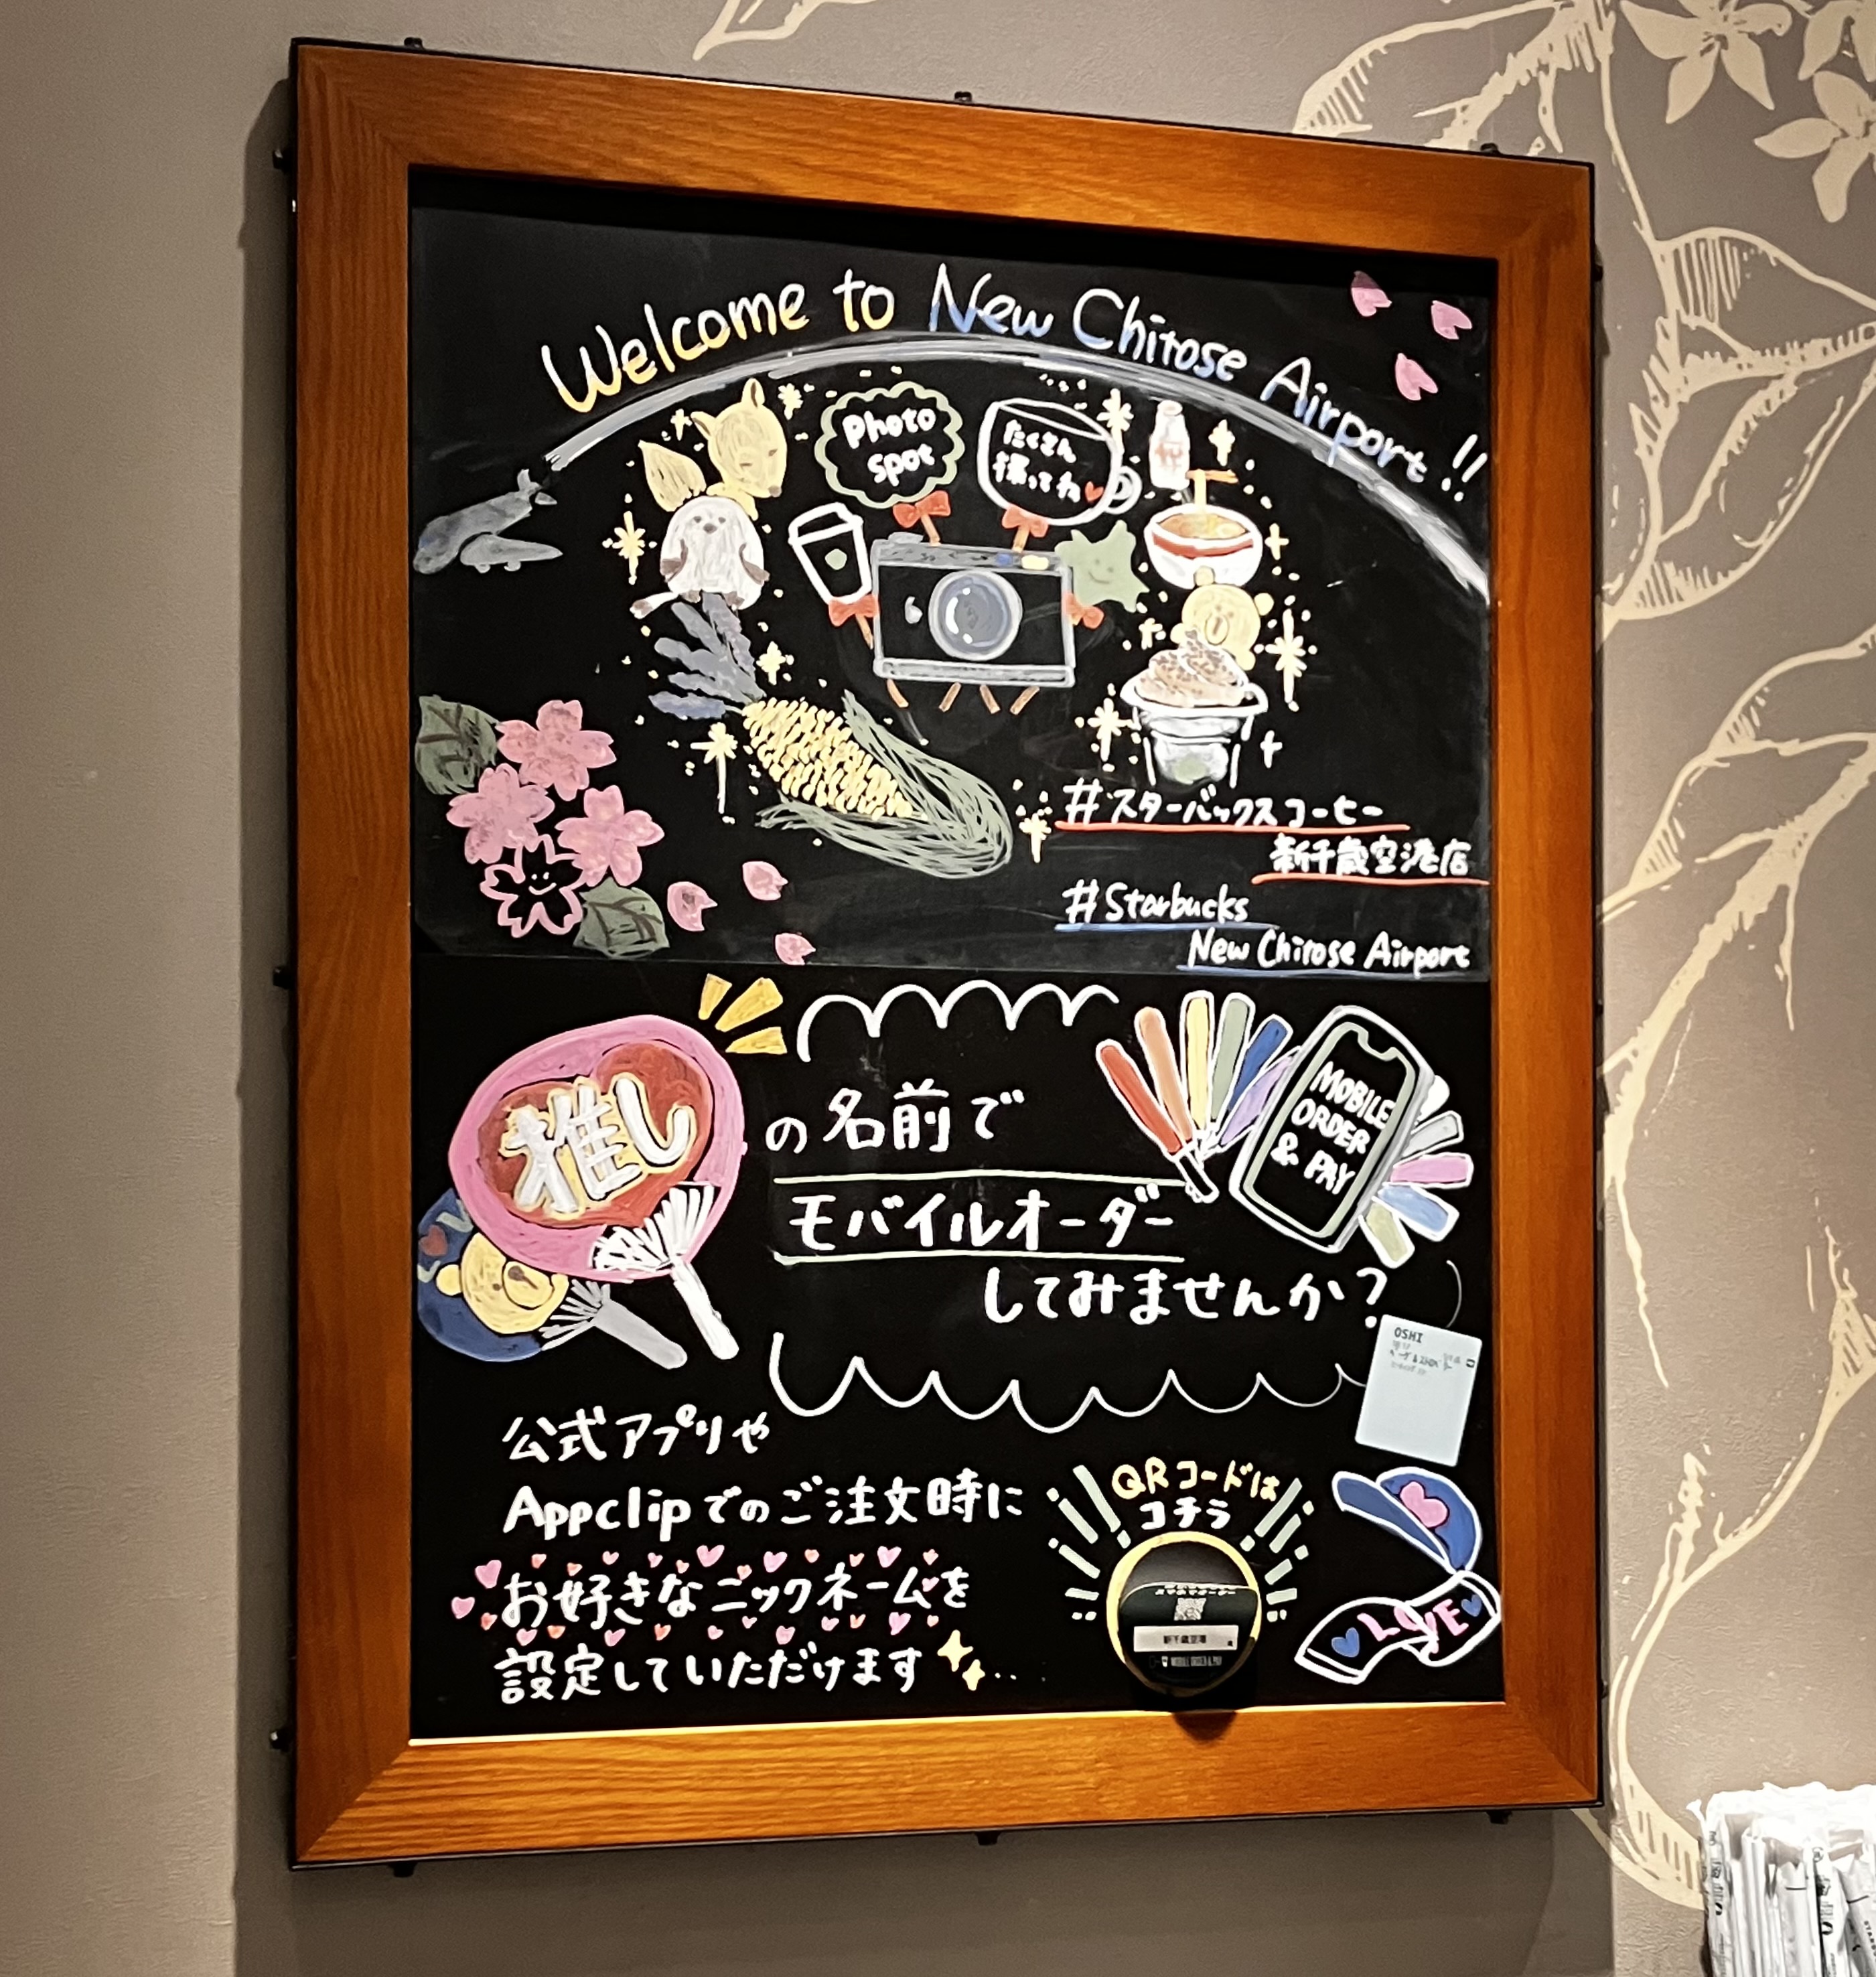 Welcome to New Chitose Airport!!
Photo
spot
たくさん
撮ってね
#スターバックスコーヒー
新千歳空港店
#Starbucks
New Chitose Airport
推し
の名前で
モバイルオーダー
してみませんか?
MOBILE
ORDER
& PAY
OSHI
公式アプリや
Appclipでのご注文時に
お好きなニックネームを
設定していただけます
QRコードは
コチラ
新千歳空港
MOBILE ORDER & PAY
LOVE